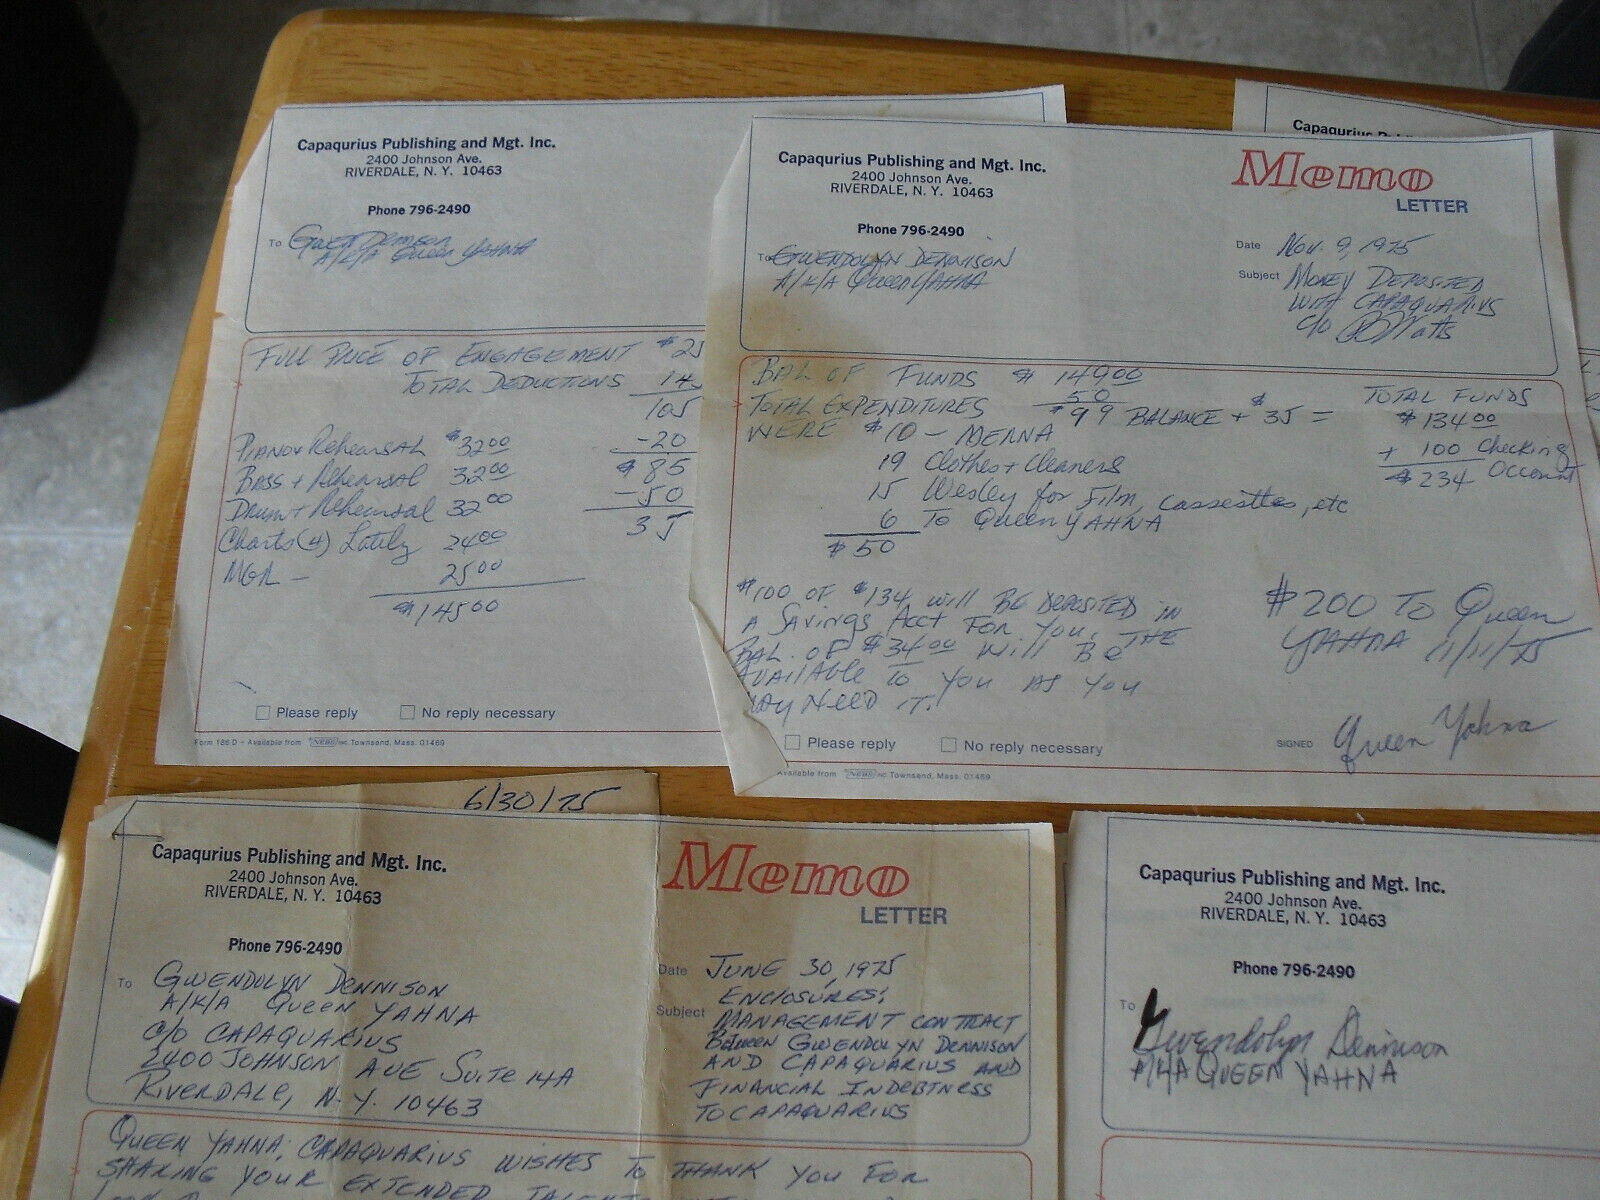 Capaqurius Publishing and Mgt. Inc.
2400 Johnson Ave.
RIVERDALE, N. Y. 10463
Phone 796-2490
To Gwen Dennison
A/K/A Queen YAHNA
FULL PRICE OF ENGAGEMENT $25
TOTAL DEDUCTIONS 145
105
-20
$85
-50
35
PIANO + Rehearsal $32.00
Bass + Rehearsal 32.00
Drum + Rehearsal 32.00
Charts (4) Lately 24.00
MGR — 25.00
$145.00
Please reply
No reply necessary
Form 186 D - Available from NEBS INC Townsend, Mass. 01469
Capaqurius Publishing and Mgt. Inc.
2400 Johnson Ave.
RIVERDALE, N. Y. 10463
Phone 796-2490
Memo
LETTER
To GWENDOLYN DENNISON
A/K/A Queen YAHNA
Date Nov. 9, 1975
Subject MONEY DEPOSITED
WITH CAPAQUARIUS
c/o Watts
BAL OF FUNDS $149.00
TOTAL EXPENDITURES 50
$99 BALANCE + $35 =
TOTAL FUNDS
$134.00
+ 100 Checking
$234 Account
WERE $10 —
19 Clothes + Cleaners
15 Wesley for Film, cassesttes, etc
6 To Queen YAHNA
$50
$100 OF $134 will BE DEPOSITED IN
A SAVINGS ACCT FOR YOU. THE
BAL. OF $34.00 will Be
AVAILABLE TO YOU AS YOU
MAY NEED IT.
$200 TO Queen
YAHNA 11/11/75
Please reply
No reply necessary
SIGNED Queen Yahna
Available from NEBS INC Townsend, Mass. 01469
Capaqurius P
6/30/75
Capaqurius Publishing and Mgt. Inc.
2400 Johnson Ave.
RIVERDALE, N. Y. 10463
Phone 796-2490
Memo
LETTER
To GWENDOLYN DENNISON
A/K/A Queen YAHNA
C/O CAPAQUARIUS
2400 JOHNSON AVE Suite 14A
RIVERDALE, N.Y. 10463
Date JUNE 30, 1975
Subject ENCLOSURES:
MANAGEMENT CONTRACT
Between GWENDOLYN DENNISON
AND CAPAQUARIUS AND
FINANCIAL INDEBTNESS
TO CAPAQUARIUS
QUEEN YAHNA; CAPAQUARIUS WISHES TO THANK YOU FOR
SHARING YOUR EXTENDED TALENTS
Capaqurius Publishing and Mgt. Inc.
2400 Johnson Ave.
RIVERDALE, N. Y. 10463
Phone 796-2490
To Gwendolyn Dennison
A/K/A QUEEN YAHNA